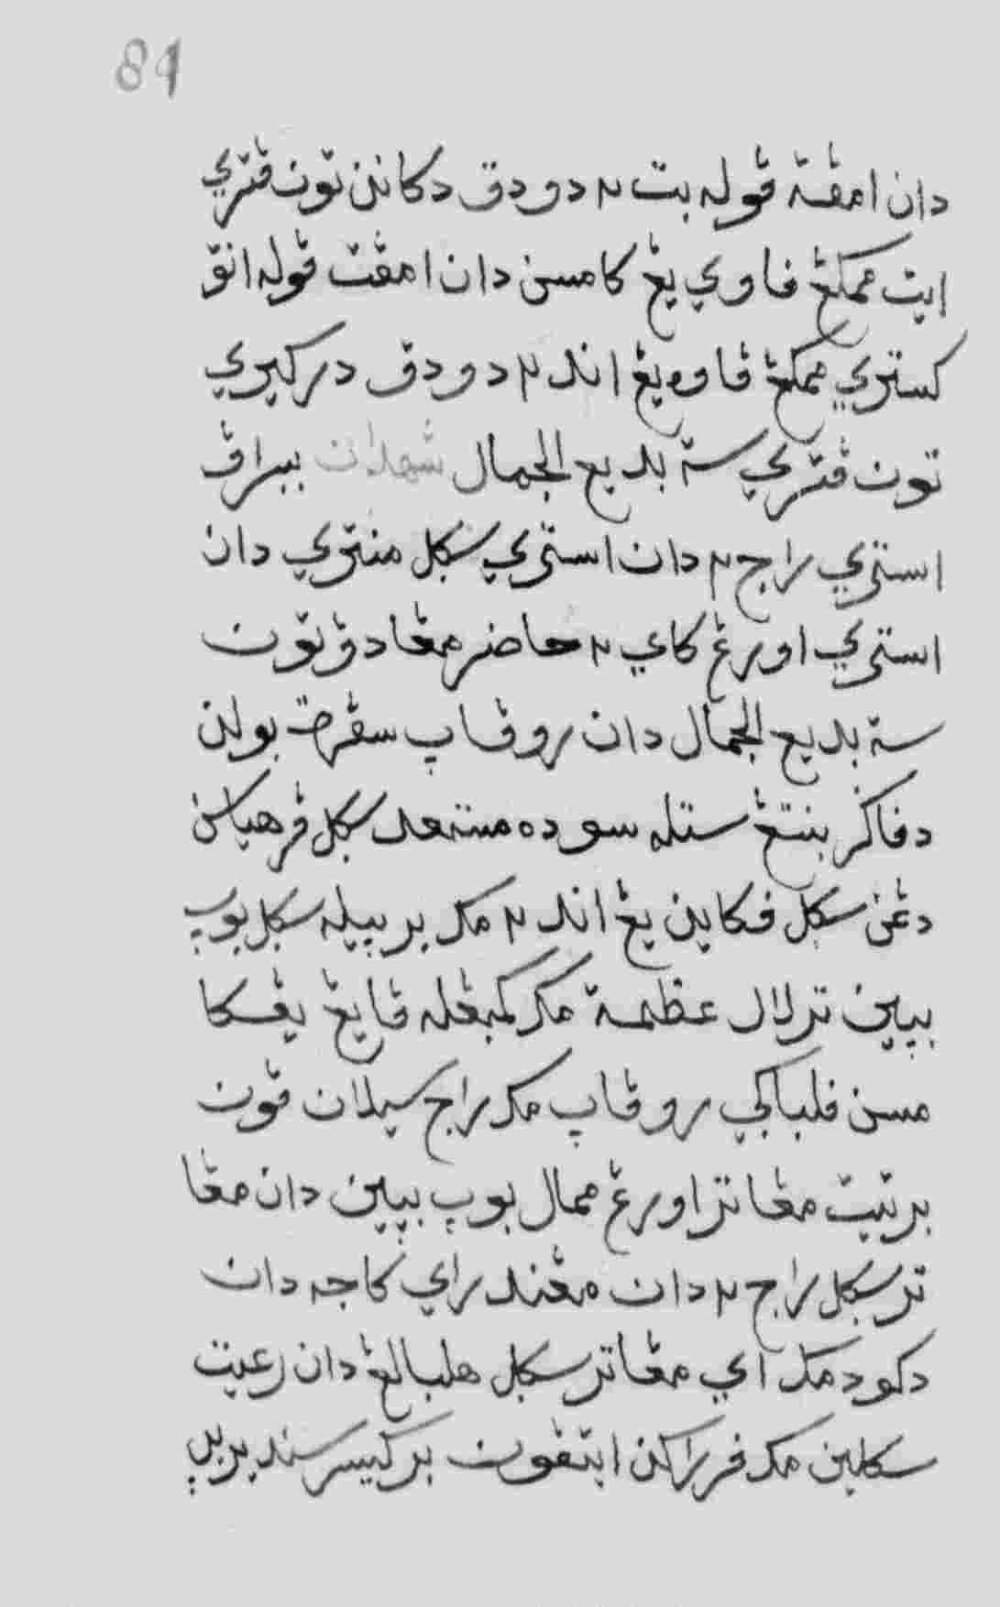 89
دان امڤة ڤوله بت ٢ دودق دكانن تون ڤتري
ايت ممكڠ فاوي يڠ كامسن دان امڤت ڤوله انق
كستري ممكڠ ڤاوي يڠ اند ٢ دودق دركيري
تون ڤتري ستي بديع الجمال شهدان ببراڤ
استري راج ٢ دان استري سكل منتري دان
استري اورڠ كاي ٢ حاضر مڠادڤ تون
ستي بديع الجمال دان روڤاپ سڤرت بولن
دڤاكر بنتڠ ستله سوده مستعد سكل ڤرهياسن
دڠن سكل ڤكاين يڠ اند ٢ مك بربيله سكل بوپي
بپين ترلالو عظمة مك كمبڠله ڤايڠ يڠ كا
مسن فلباكي روڤاپ مك راج سيلان ڤون
برتيت مڠاتر اورڠ ممالو بوپي بپين دان مڠا
تر سكل راج ٢ دان مڠندراي كاجه دان
دكود مك اي مڠاتر سكل هلبالڠ دان رعيت
سكلين مك فراراكن ايتڤون بركيسرسند بربلي